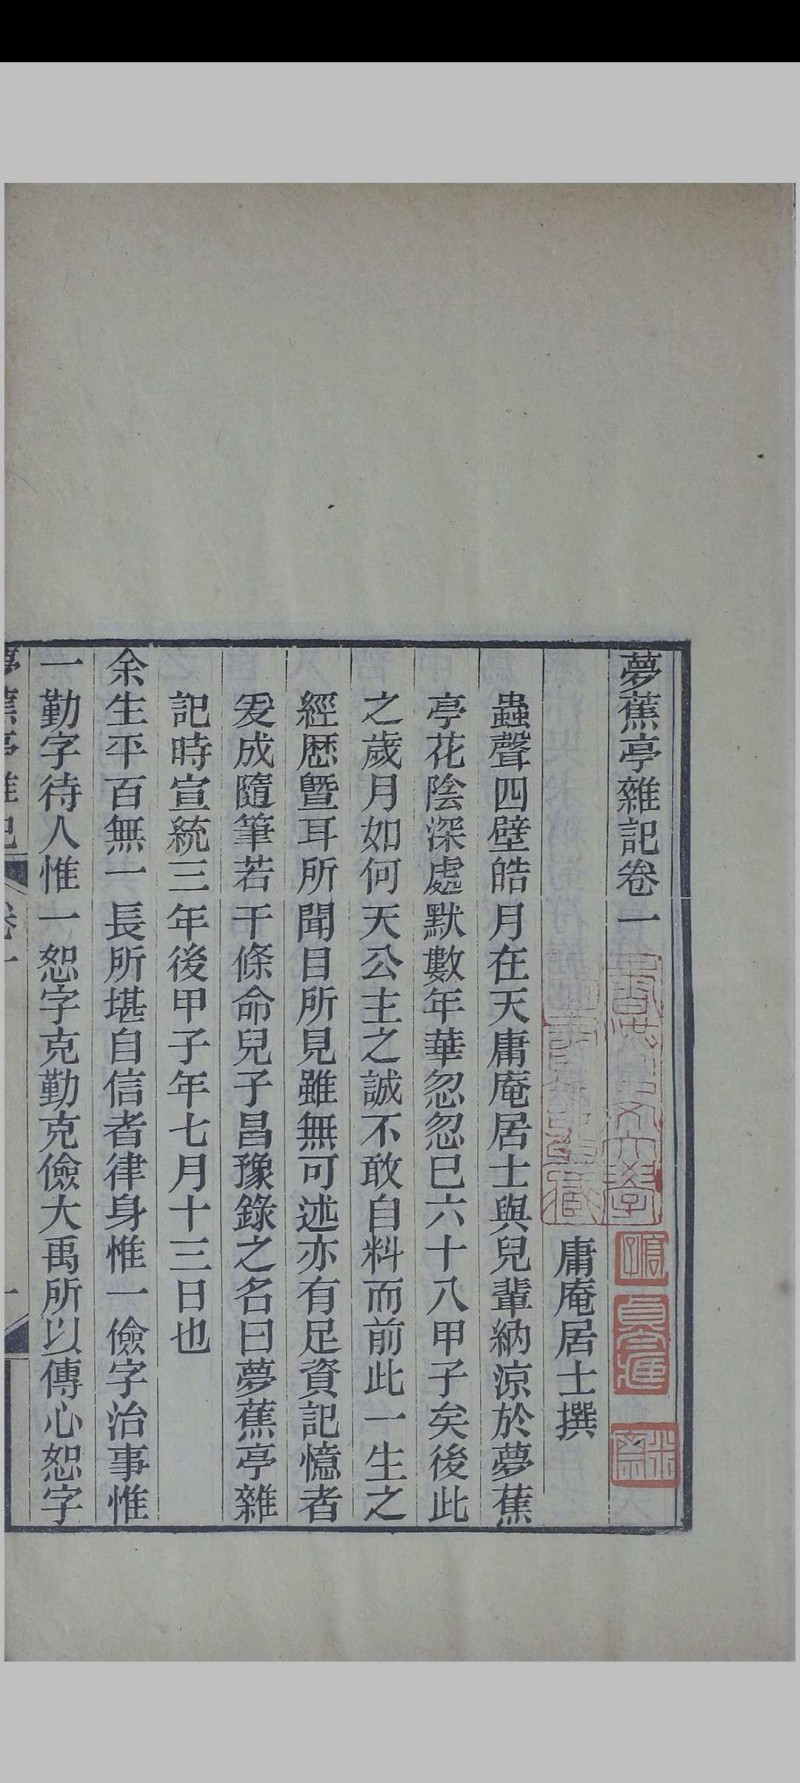 夢蕉亭雜記卷一
庸庵居士撰
蟲聲四壁皓月在天庸庵居士與兒輩納涼於夢蕉
亭花陰深處默數年華忽忽已六十八甲子矣後此
之歲月如何天公主之誠不敢自料而前此一生之
經歷暨耳所聞目所見雖無可述亦有足資記憶者
爰成隨筆若干條命兒子昌豫錄之名曰夢蕉亭雜
記時宣統三年後甲子年七月十三日也
余生平百無一長所堪自信者律身惟一儉字治事惟
一勤字待人惟一恕字克勤克儉大禹所以傳心恕字
夢蕉亭雜記 卷一 一